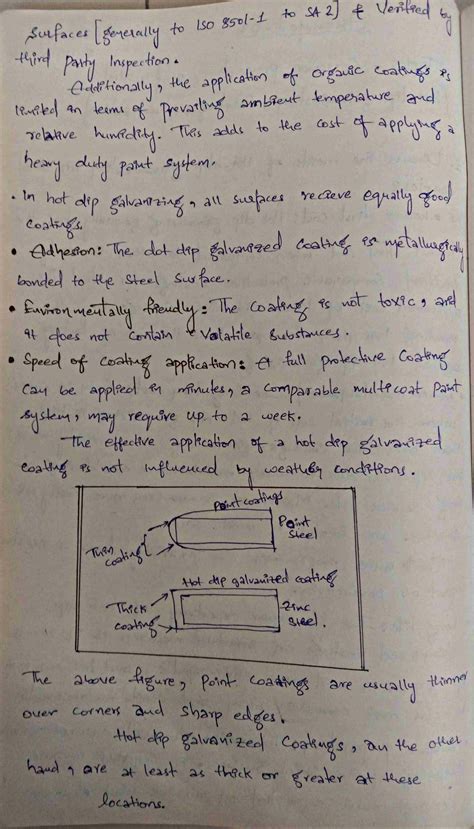 Surfaces [generally to ISO 8501-1 to SA 2] & Verified by
third Party Inspection.
Additionally, the application of organic coatings is
limited in terms of prevailing ambient temperature and
relative humidity. This adds to the cost of applying a
heavy duty paint system.
• In hot dip galvanizing, all surfaces recieve equally good
coatings.
• Adhesion: The dot dip galvanized coating is metallurgically
bonded to the steel surface.
• Environmentally friendly: The coating is not toxic, and
it does not contain volatile substances.
• Speed of coating application: A full protective coating
can be applied in minutes, a comparable multicoat paint
system, may require up to a week.
The effective application of a hot dip galvanized
coating is not influenced by weather conditions.
Paint coatings
Thin
coating
Paint
Steel
Hot dip galvanized coating
Thick
coating
Zinc
Steel.
The above figure, point coatings are usually thinner
over corners and sharp edges.
Hot dip galvanized coatings, on the other
hand, are at least as thick or greater at these
locations.